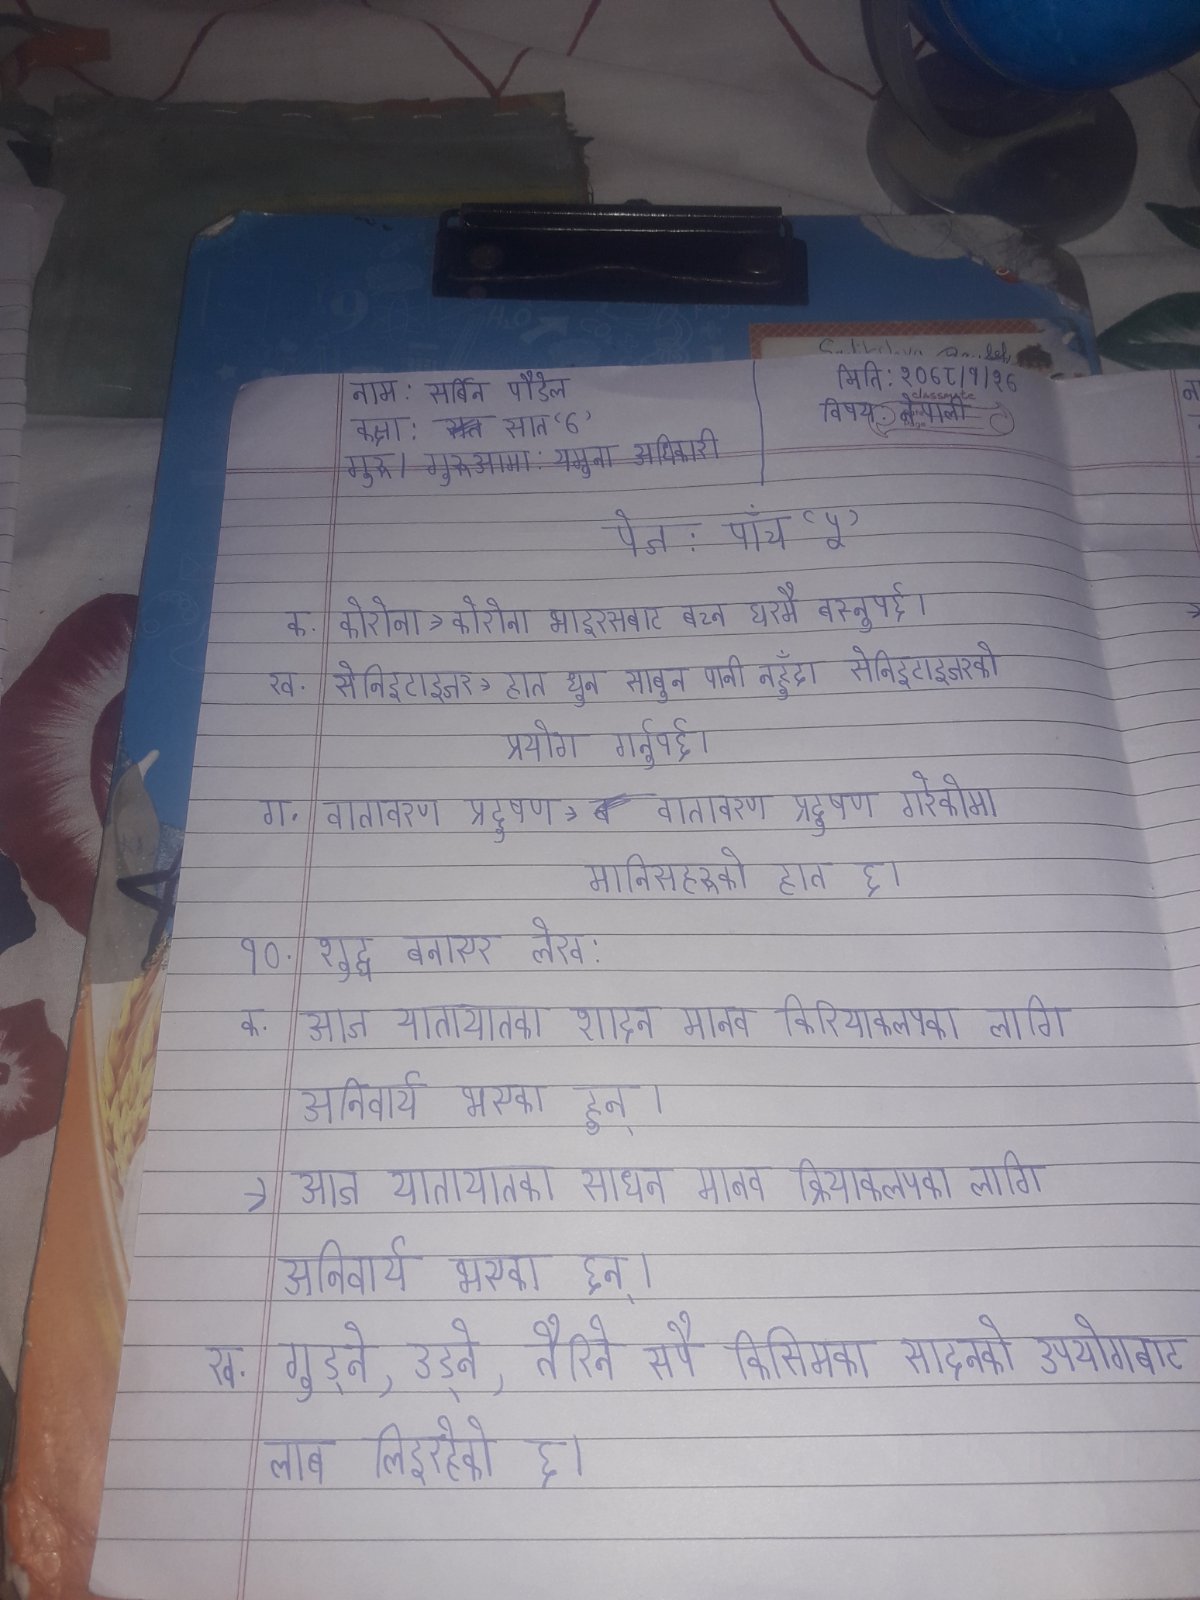 नाम: सर्विन पौडेल
मिति: २०७८/१/२६
कक्षा: सात '७'
classmate
विषय: नेपाली
गुरू। गुरूआमा: यमुना अधिकारी
पेज: पाँच '५'
क. कोरोना → कोरोना भाइरसबाट बच्न घरमै बस्नुपर्छ।
ख. सेनिइटाइजर → हात धुन साबुन पानी नहुँदा सेनिइटाइजरको
प्रयोग गर्नुपर्छ।
ग. वातावरण प्रद्रुषण → वातावरण प्रद्रुषण गरेकोमा
मानिसहरूको हात छ।
१०. शुद्ध बनाएर लेख:
क. आज यातायातका शादन मानव किरियाकलपका लागि
अनिवार्य भएका हुन्।
→ आज यातायातका साधन मानव क्रियाकलपका लागि
अनिवार्य भएका छन्।
ख. गुड्ने, उड्ने, तैरिने सपै किसिमका सादनको उपयोगबाट
लाब लिइरहेको छ।